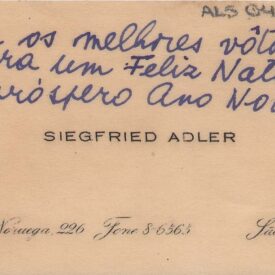 ALS 04
os melhores vôt
um Feliz Nat
próspero Ano No
SIEGFRIED ADLER
Noruega, 226 Fone 8-6363